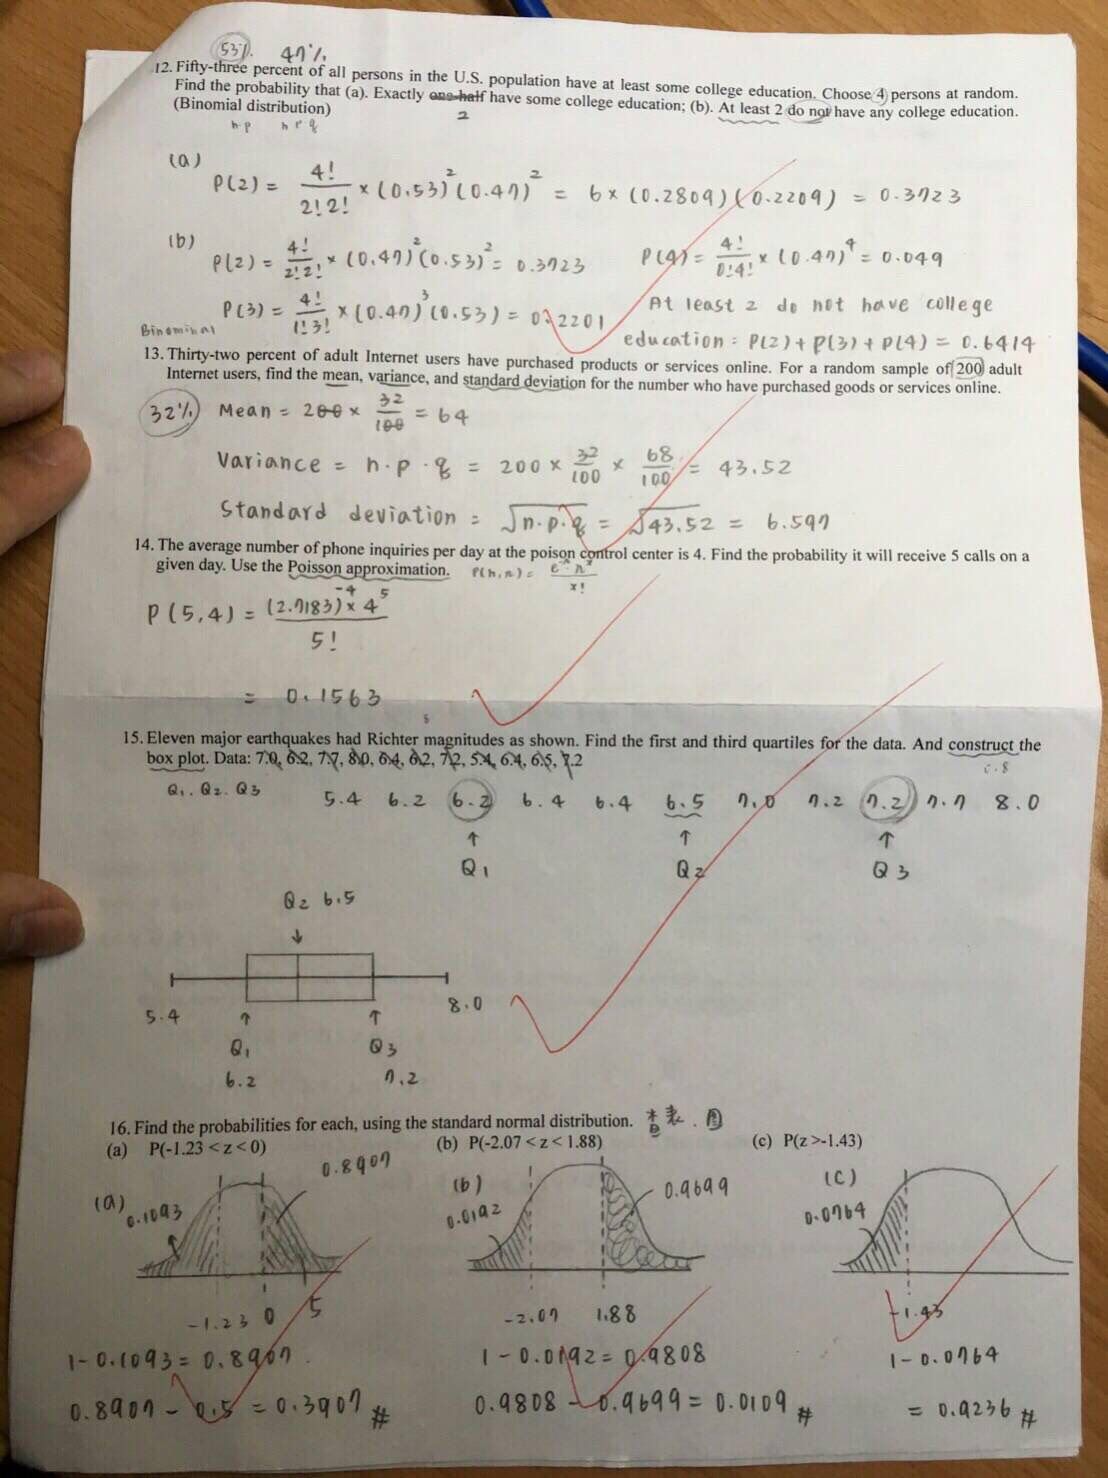 53%. 47%
12. Fifty-three percent of all persons in the U.S. population have at least some college education. Choose 4 persons at random.
Find the probability that (a). Exactly one-half have some college education; (b). At least 2 do not have any college education.
2
(Binomial distribution)
n p n p q
(a)
P(2) = 4!/2!2! × (0.53)² (0.47)² = 6 × (0.2809)(0.2209) = 0.3723
(b)
P(2) = 4!/2!2! × (0.47)² (0.53)² = 0.3723
P(4) = 4!/0!4! × (0.47)⁴ = 0.049
P(3) = 4!/1!3! × (0.47)³ (0.53) = 0.2201
At least 2 do not have college
education : P(2) + P(3) + P(4) = 0.6414
Binominal
13. Thirty-two percent of adult Internet users have purchased products or services online. For a random sample of 200 adult
Internet users, find the mean, variance, and standard deviation for the number who have purchased goods or services online.
32% Mean = 200 × 32/100 = 64
Variance = n·p·q = 200 × 32/100 × 68/100 = 43.52
Standard deviation = √n·p·q = √43.52 = 6.597
14. The average number of phone inquiries per day at the poison control center is 4. Find the probability it will receive 5 calls on a
given day. Use the Poisson approximation.
P(5,4) = (2.7183)⁻⁴ × 4⁵ / 5!
= 0.1563
15. Eleven major earthquakes had Richter magnitudes as shown. Find the first and third quartiles for the data. And construct the
box plot. Data: 7.0, 6.2, 7.7, 8.0, 6.4, 6.2, 7.2, 5.4, 6.4, 6.5, 7.2
Q1. Q2. Q3
5.4 6.2 6.2 6.4 6.4 6.5 7.0 7.2 7.2 7.7 8.0
↑ ↑ ↑
Q1 Q2 Q3
Q2 6.5
↓
5.4 ↑ ↑ 8.0
Q1 Q3
6.2 7.2
16. Find the probabilities for each, using the standard normal distribution. 查表.圖
(a) P(-1.23 < z < 0) (b) P(-2.07 < z < 1.88) (c) P(z >-1.43)
(a) 0.1093 0.8907
(b) 0.0192 0.9699
(c) 0.0764
-1.23 0 5
-2.07 1.88
-1.43
1 - 0.1093 = 0.8907
1 - 0.0192 = 0.9808
1 - 0.0764
0.8907 - 0.5 = 0.3907 #
0.9808 - 0.9699 = 0.0109 #
= 0.9236 #